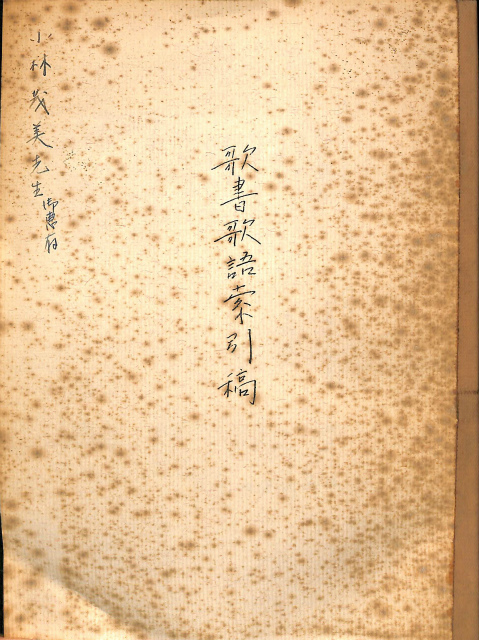 歌書歌語索引稿
小林茂美先生御恵存